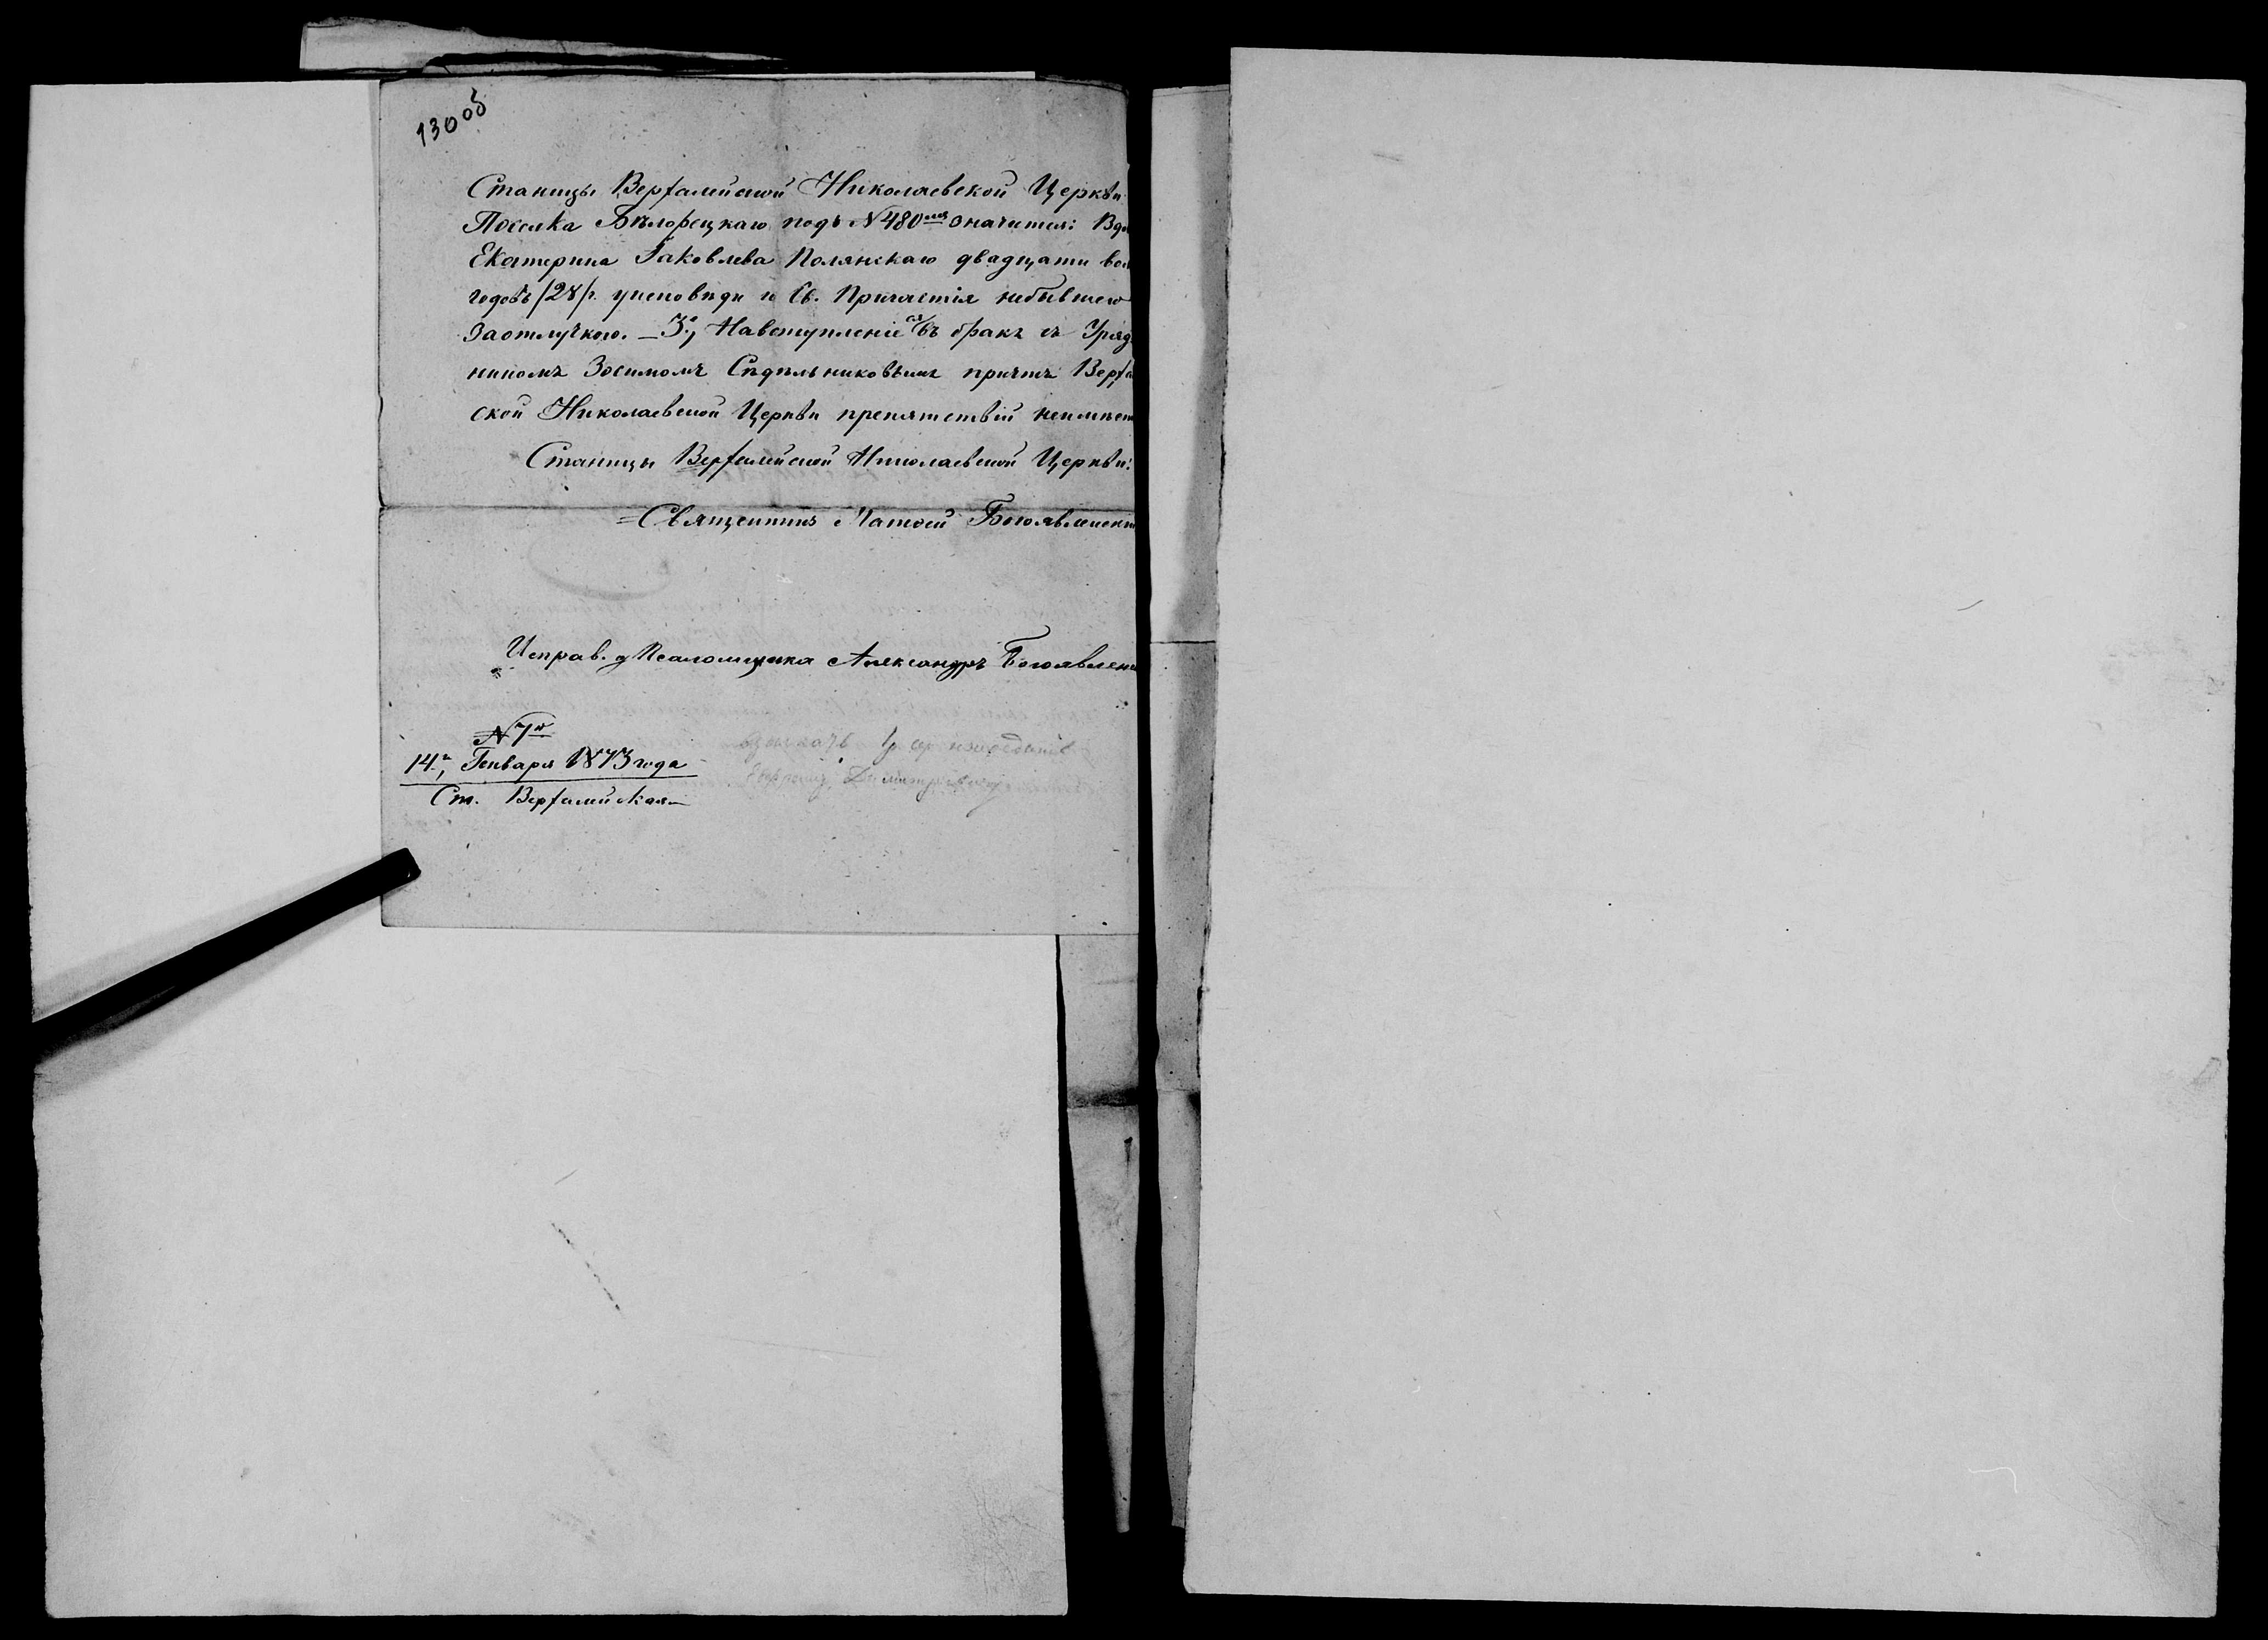 130 об
Станицы Верхалейской Николаевской Церкви
Поселка Бѣлорецкаго подъ №480мъ значится: Вдо
Екатерина Іаковлева Полянскаго двадцати вос
годовъ /28/ г. уисповѣди и Св. Причастія небывшею
Заотлучкою. – 3е, Навступленіе ея въ бракъ съ Уряд
никомъ Зосимомъ Сѣдѣльниковымъ причтъ Верха
ской Николаевской Церкви препятствій неимѣет
Станицы Верхалейской Николаевской Церкви:
=Священникъ Матѳей Богоявленск
Исправ. д Псаломщика Александръ Богоявленс
№ 7й
14го, Генваря 1873 года
Ст. Верхалейская